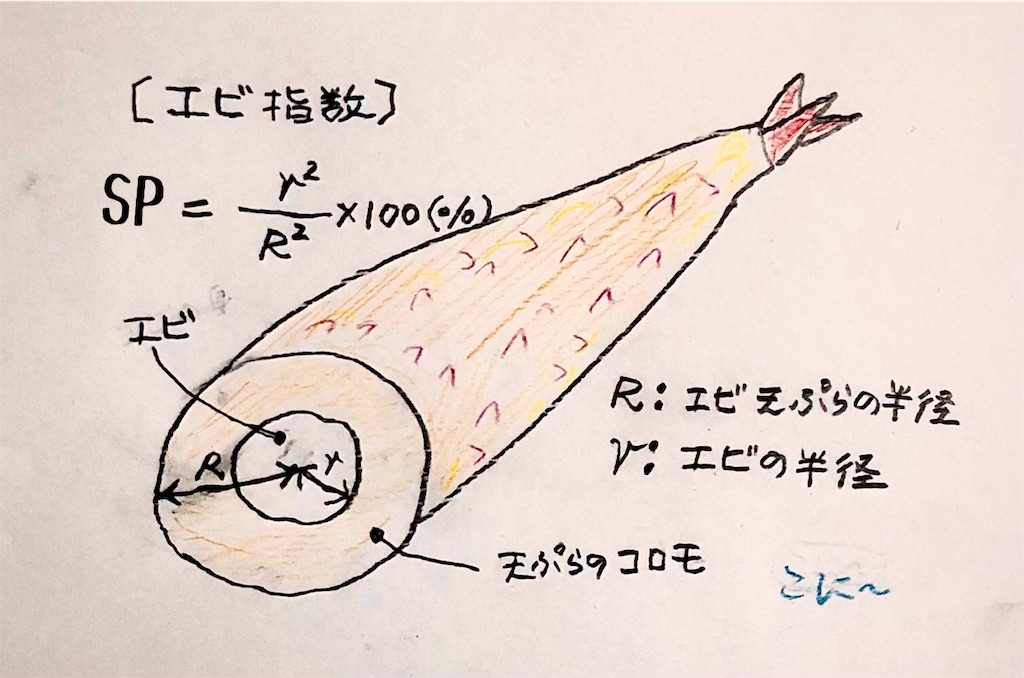 [エビ指数]
SP = r²/R² ×100(%)
エビ
R
r
R: エビ天ぷらの半径
r: エビの半径
天ぷらのコロモ
こに〜